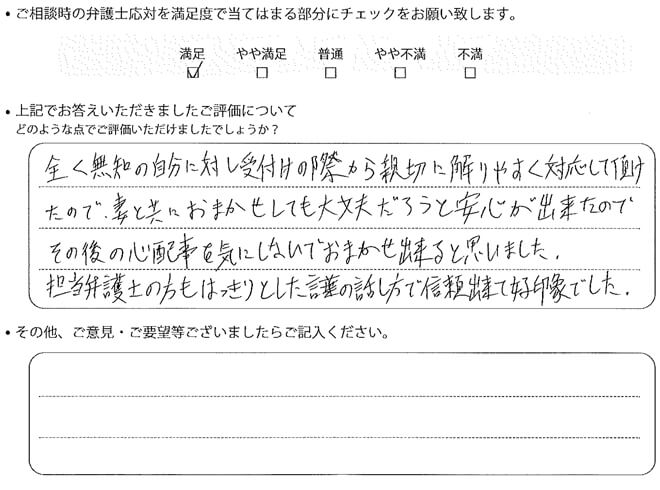 ・ご相談時の弁護士応対を満足度で当てはまる部分にチェックをお願い致します。
満足 やや満足 普通 やや不満 不満
☑ □ □ □ □
・上記でお答えいただきましたご評価について
どのような点でご評価いただけましたでしょうか?
全く無知の自分に対し受付けの際から親切に解りやすく対応して頂け
たので、妻と共におまかせしても大丈夫だろうと安心が出来たので
その後の心配事を気にしないでおまかせ出来ると思いました。
担当弁護士の方もはっきりとした言葉の話し方で信頼出来て好印象でした。
・その他、ご意見・ご要望等ございましたらご記入ください。